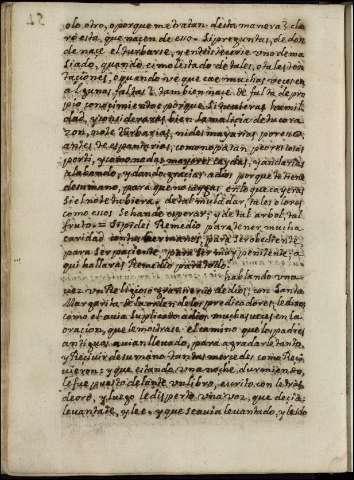 olo otro, o porque me tratan desta manera? cla
ro esta, que nacen de esso. Si preguntas, de don
de nace el turbarse, y entristecerse uno dema
siado, quando es molestado de tales, o tales ten
taciones, o quando ve que cae muchas veces en
algunas faltas? tambien nace de falta de pro
pio conocimiento porque si tuvieras humil
dad, y consideraras bien la malicia de tu cora
zon, no te turbarias, ni desmayarias por esso:
antes te espantarias, como no pasan peores cosas
por ti, y como no das mayores caydas, y andarias
alabando, y dando gracias a dios porque te tiene
de su mano, para que no caygas en lo que cayeras
si el no te tubiera. de tal muladar, tales olores
como essos se han de esperar; y de tal arbol, tal
fruto = Si quieres Remedio para tener mucha
caridad con tus hermanos, para ser obediente
para ser paciente, para ser muy penitente; a
qui hallaras Remedio para todo.
hablando una
vez un Religioso gran siervo de dios; con Santa
Margarita de la orden de los predicadores, le dixo
como el avia suplicado a dios muchas veces en la
oracion, que le mostrase el camino que los padres
antiguos avian llevado, para agradarle tanto,
y Recivir de su mano tantas mercedes como Reci
vieron: y que estando una noche, durmiendo,
le fue puesto delante un libro, escrito con letras
de oro, y luego le desperto una voz, que decia:
levantate, y lee, y que se avia levantado, y leido